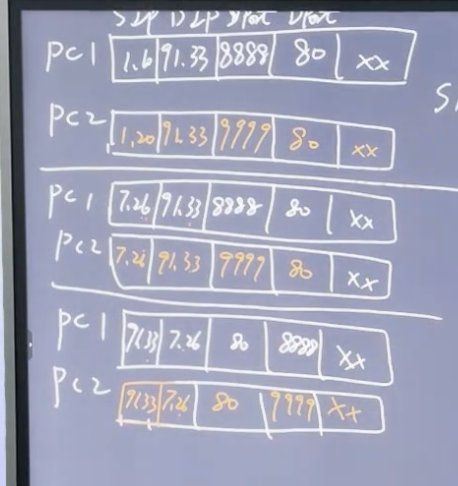 SIP DIP Sport Dport
PC1 1.6 91.33 8888 80 xx
PC2 1.20 91.33 9999 80 xx
PC1 7.26 91.33 8888 80 xx
PC2 7.26 91.33 9999 80 xx
PC1 91.33 7.26 80 8888 xx
PC2 91.33 7.26 80 9999 xx